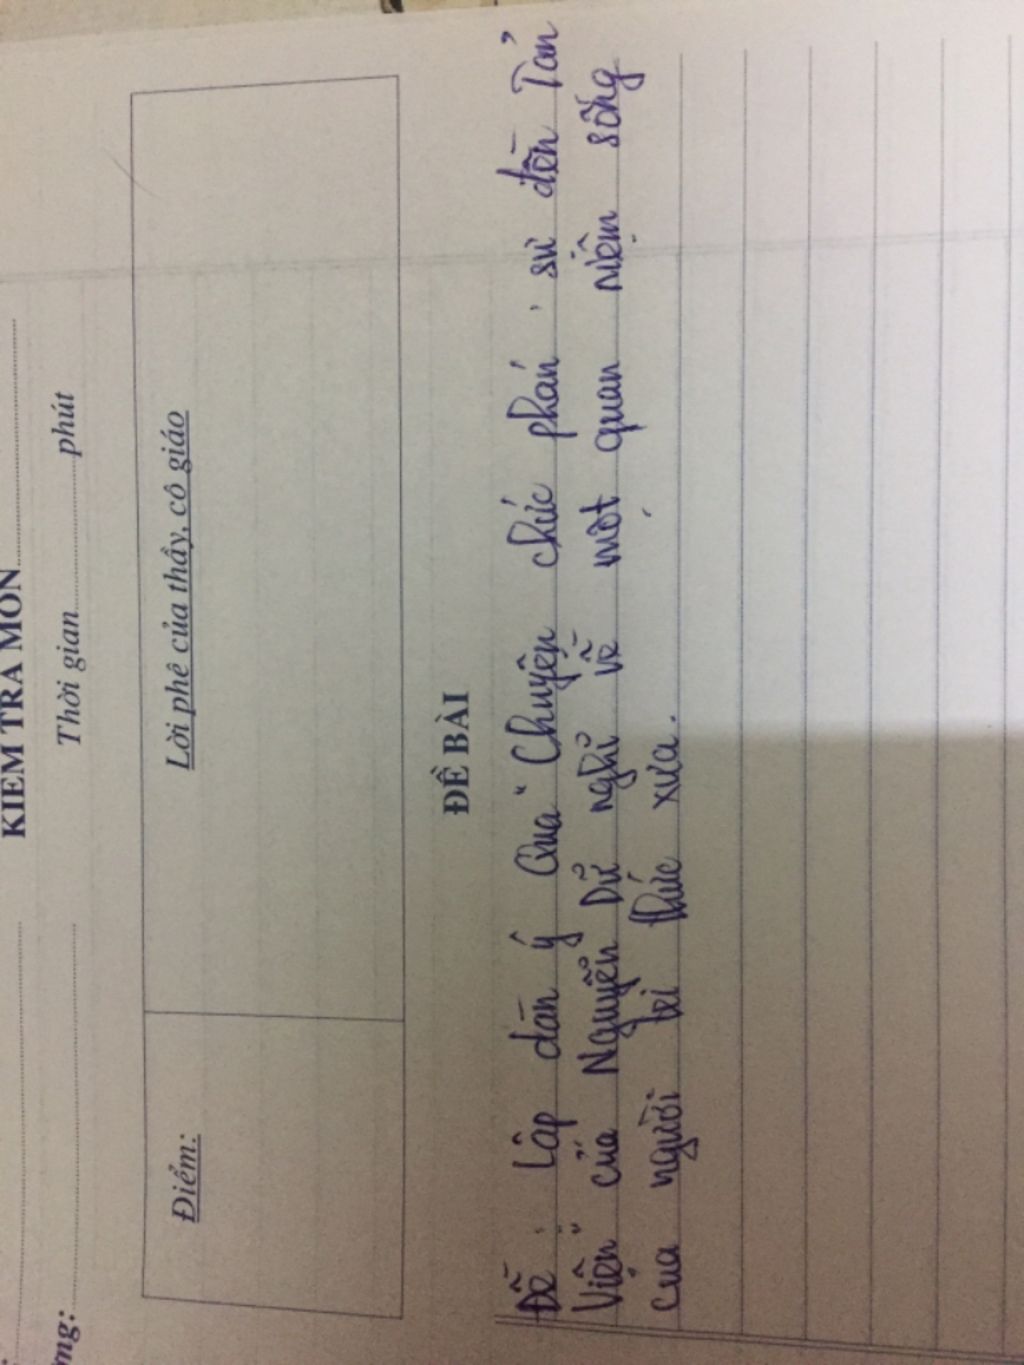 KIỂM TRA MÔN
Thời gian phút
Điểm:
Lời phê của thầy, cô giáo
ĐỀ BÀI
Đề: Lập dàn ý Qua "Chuyện chức phán sự đền Tản
Viên" của Nguyễn Dữ nghĩ về một quan niệm sống
của người trí thức xưa.